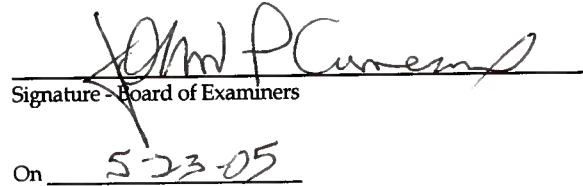 John P
Signature - Board of Examiners
On 5-23-05